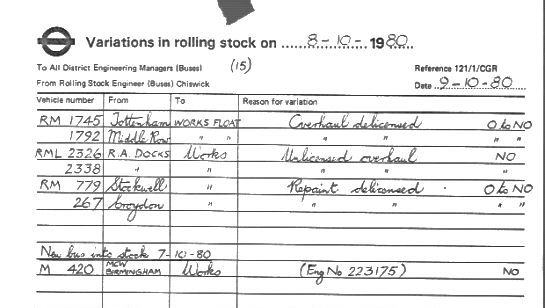 Variations in rolling stock on 8-10-1980
To All District Engineering Managers (Buses) (15) Reference 121/1/CGR
From Rolling Stock Engineer (Buses) Chiswick Date 9-10-80
Vehicle number From To Reason for variation
RM 1745 Tottenham WORKS FLOAT Overhaul delicensed O to NO
1792 Middle Row " " " " " "
RML 2326 R.A. DOCKS Works Unlicensed overhaul NO
2338 " " " " "
RM 779 Stockwell " Repaint delicensed O to NO
267 Croydon " " " " "
New bus into stock 7-10-80
M 420 MCW BIRMINGHAM Works (Eng No 223175) NO